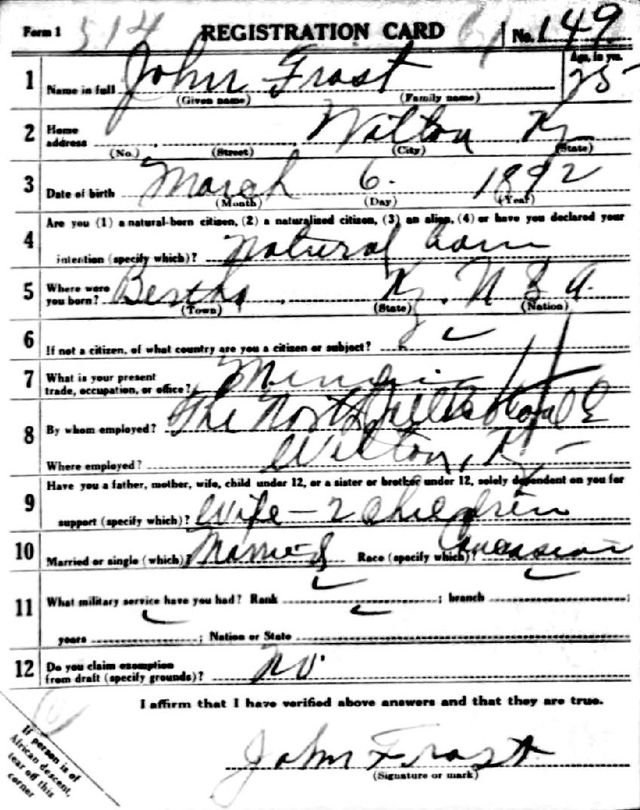 Form 1 514 REGISTRATION CARD No. 149
1 Name in full John Frost Age, in yrs. 25
(Given name) (Family name)
2 Home address Wilton Ky
(No.) (Street) (City) (State)
3 Date of birth March 6. 1892
(Month) (Day) (Year)
4 Are you (1) a natural-born citizen, (2) a naturalized citizen, (3) an alien, (4) or have you declared your
intention (specify which)? natural born
5 Where were you born? Bertha Ky.
(Town) (State) (Nation)
6 If not a citizen, of what country are you a citizen or subject?
7 What is your present trade, occupation, or office?
8 By whom employed? The North
Where employed? Wilton, Ky
9 Have you a father, mother, wife, child under 12, or a sister or brother under 12, solely dependent on you for
support (specify which)? Wife - 2 children
10 Married or single (which)? Married Race (specify which)? Caucasian
11 What military service have you had? Rank ; branch ;
years ; Nation or State
12 Do you claim exemption from draft (specify grounds)? No.
I affirm that I have verified above answers and that they are true.
John Frost
(Signature or mark)
If person is of
African descent,
tear off this
corner